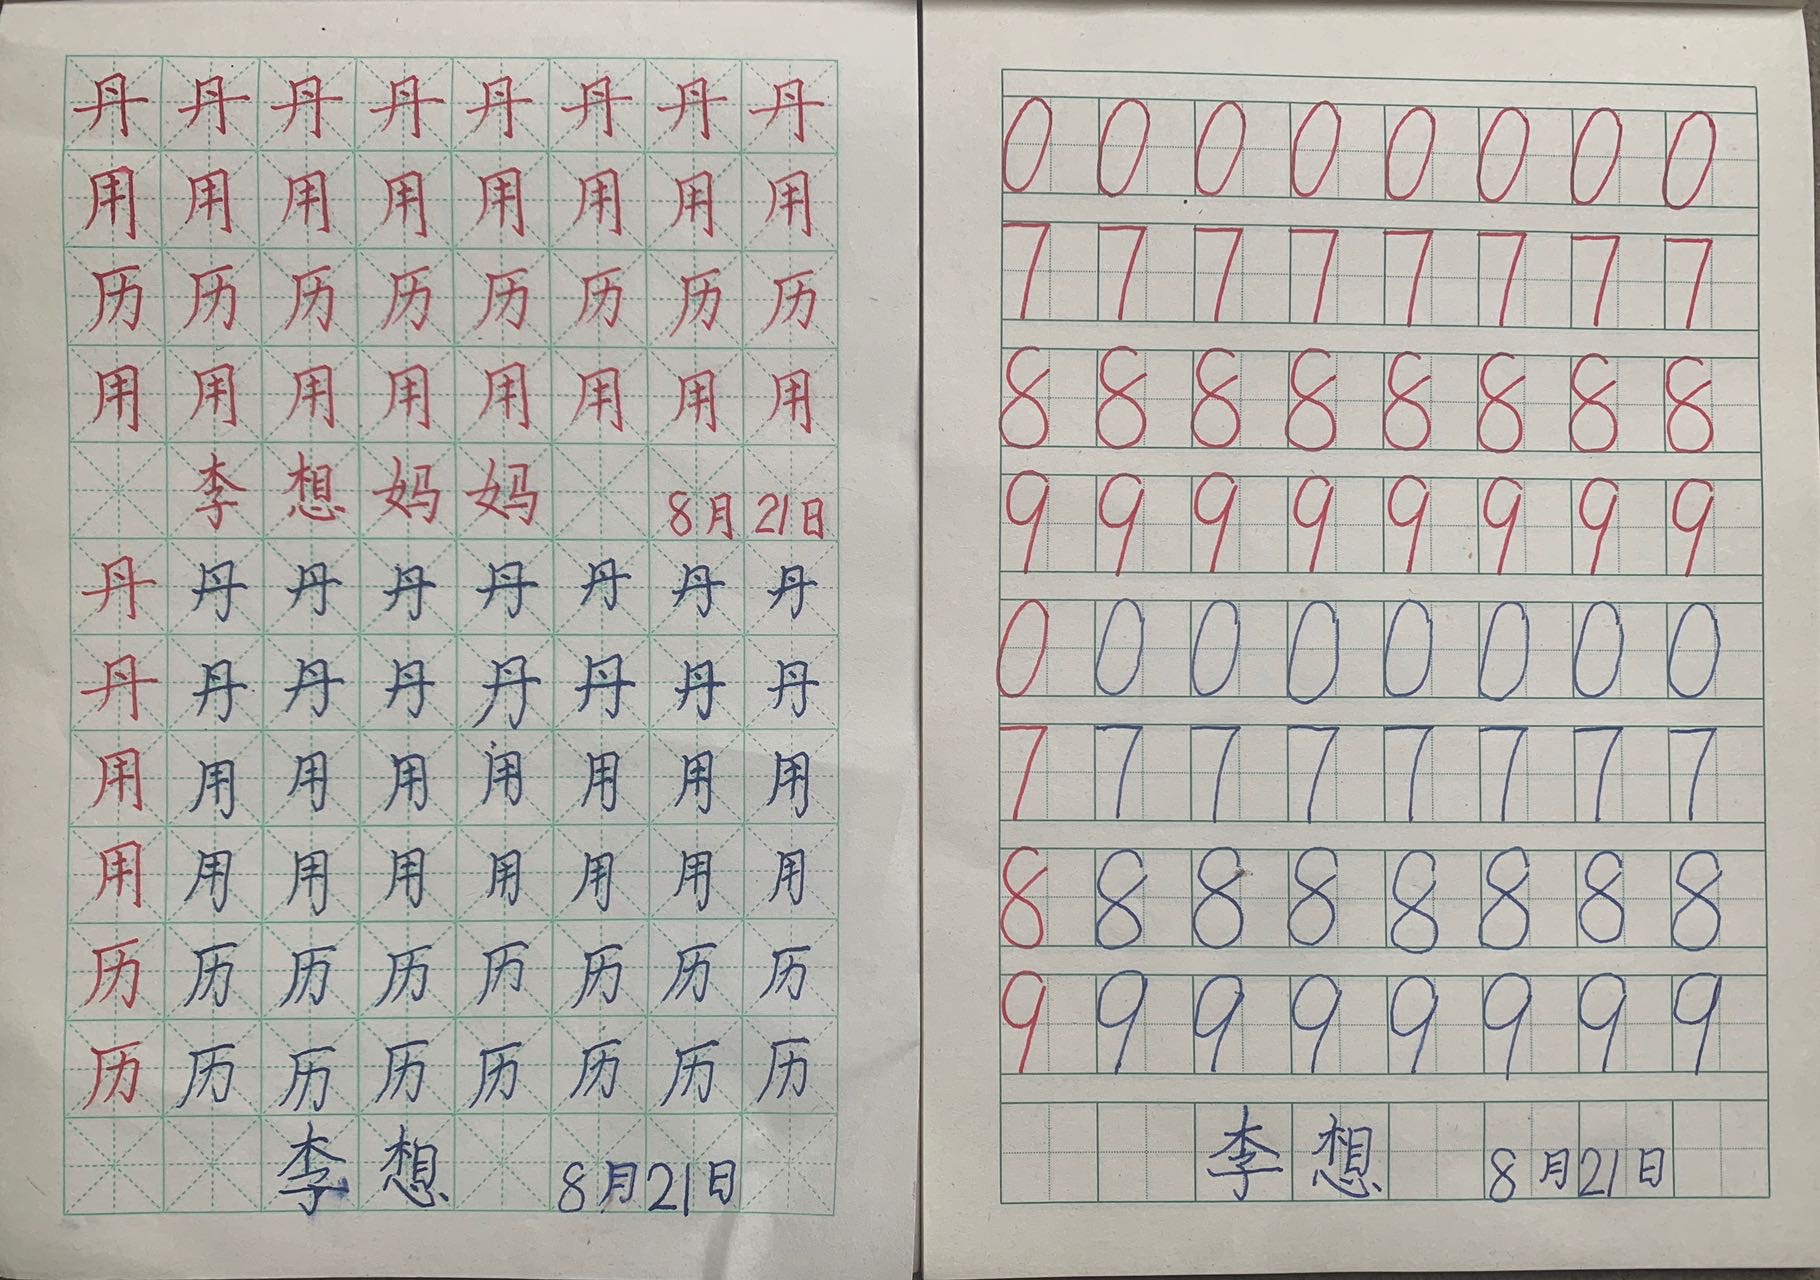 丹丹丹丹丹丹丹丹
用用用用用用用用
历历历历历历历历
用用用用用用用用
李想妈妈 8月21日
丹丹丹丹丹丹丹丹
丹丹丹丹丹丹丹丹
用用用用用用用用
用用用用用用用用
历历历历历历历历
历历历历历历历历
李想 8月21日
0 0 0 0 0 0 0 0
7 7 7 7 7 7 7 7
8 8 8 8 8 8 8 8
9 9 9 9 9 9 9 9
0 0 0 0 0 0 0 0
7 7 7 7 7 7 7 7
8 8 8 8 8 8 8 8
9 9 9 9 9 9 9 9
李想 8月21日